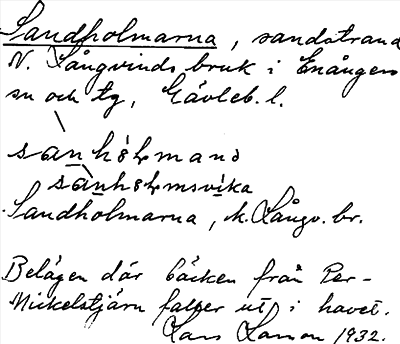 Sandholmarna, sandstrand
N. Långvinds bruk i Enångers
sn och tg, Gävleb. l.
sanhòlmanɔ
sanhòlmsvika
Sandholmarna, k. Långv. br.
Belägen där bäcken från Per-
Mickelstjärn faller ut i havet.
Lars Larson 1932.